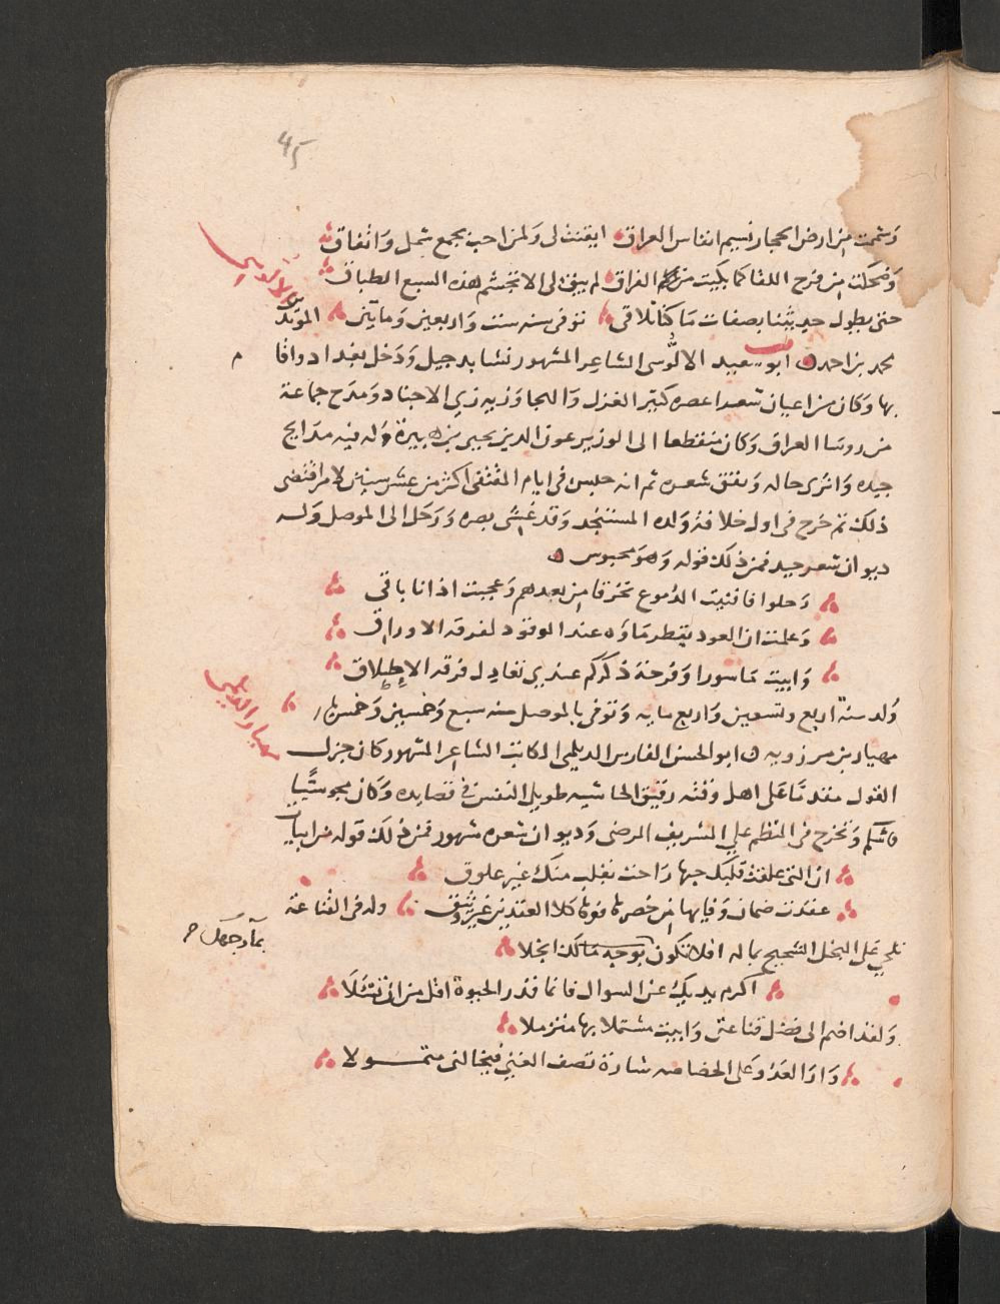 45
وشممت من ارض الحجاز نسيم انفاس العراق ايقنت لى ولمن احب بجمع شمل واتفاق
وضحكت من فرح اللقا كما بكيت من الفراق لم يبق لى الا تجشم هذه السبع الطباق
حتى يطول حديثنا بصفات ما كنا نلاقى توفى سنه ست واربعين ومايتين المويد
الالوسي
محمد بن احمد ابو سعيد الالوسى الشاعر المشهور نشا بدجيل ودخل بغداد واقا م
بها وكان من اعيان شعرا عصره كثير الغزل والهجا وزيه زي الاجناد ومدح جماعة
من روسا العراق وكان منقطعا الى الوزير عون الدين يحيى بن هبيرة وله فيه مدايح
جيده واثرى حاله ونفق شعره ثم انه حبس فى ايام المقتفى اكثر من عشر سنين لامر اقتضى
ذلك ثم خرج فى اول خلافة ولده المستنجد وقد غشى بصره ورحل الى الموصل وله
ديوان شعر جيد فمن ذلك قوله وهو محبوس
رحلوا فافنيت الدموع تحرقا من بعدهم وعجبت اذ انا باقى
وعلمت ان العود يقطر ماوه عند الوقود لفرقه الاوراق
وابيت ماسورا وفرحة ذكركم عندي تعادل فرقه الاطلاق
ولد سنة اربع وتسعين واربع مايه وتوفى بالموصل سنه سبع وخمسين وخمس
مهيار الديلمي
مهيار بن مرزويه ابو الحسن الفارسى الديلمى الكاتب الشاعر المشهور كان جزل
القول مقدما على اهل وقته رقيق الحاشيه طويل النفس فى قصايده وكان مجوسيا
فاسلم وتخرج فى النظم على الشريف الرضى وديوان شعره مشهور فمن ذلك قوله من ابيات
ان التى علقت قلبك حبها راحت بقلب منك غير علوق
عقدت ضمان وفايها من خصرها فوها كلا العقدين غير وثيق وله فى القناعة
تلحي على البخل الشحيح بماله افلا تكون بوجهك ابخلا
بمآ وجهك
اكرم يديك عن السوال فانما قدر الحيوة اقل من ان تسئلا
ولقد اضم الى فضل قناعتى وابيت مشتملا بها متزملا
وارا العدو على الخصاصه شارة تصف الغني فيخالنى متمولا